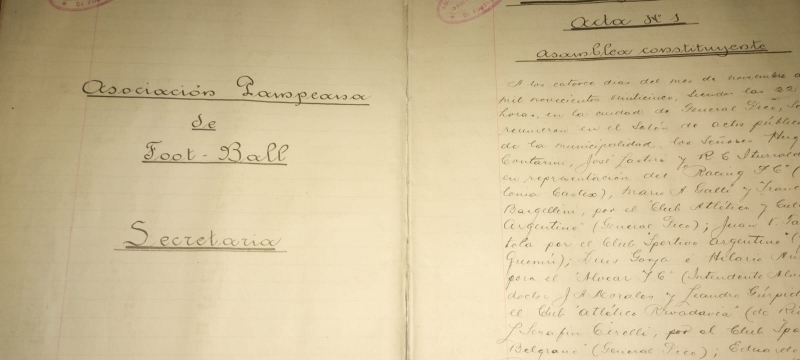 Asociación Pampeana
de
Foot-Ball
Secretaria
Acta Nº 1
Asamblea constituyente
A los catorce dias del mes de noviembre
mil novecientos veinticinco, siendo las 22
horas, en la ciudad de General Pico, se
reunieron en el Salón de actos públic
de la municipalidad, los Señores Hug
José Lastiri y R. E. Iturrald
en representación del "Racing F C" (
lonia Castex), Mario A Galli y Franc
Bargellini, por el "Club Atlético y Cul
Argentino" (General Pico); Juan V.
tola por el Club "Sportivo Argentino" (
Quemú); Luis Gonja é Hilario
por el "Alvear F C" (Intendente Alv
doctor J. A. Morales y Leandro Gúrpid
el Club "Atlético Rivadavia" (de R
Serafin Cirelli, por el Club Spo
Belgrano" (General Pico); Eduardo